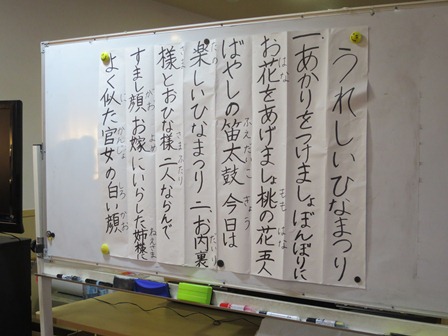 うれしいひなまつり
一、あかりをつけましょぼんぼりに
お花をあげましょ桃の花五人
ばやしの笛太鼓今日は
楽しいひなまつり二、お内裏
様とおひな様二人ならんで
すまし顔お嫁にいらした姉様に
よく似た官女の白い顔